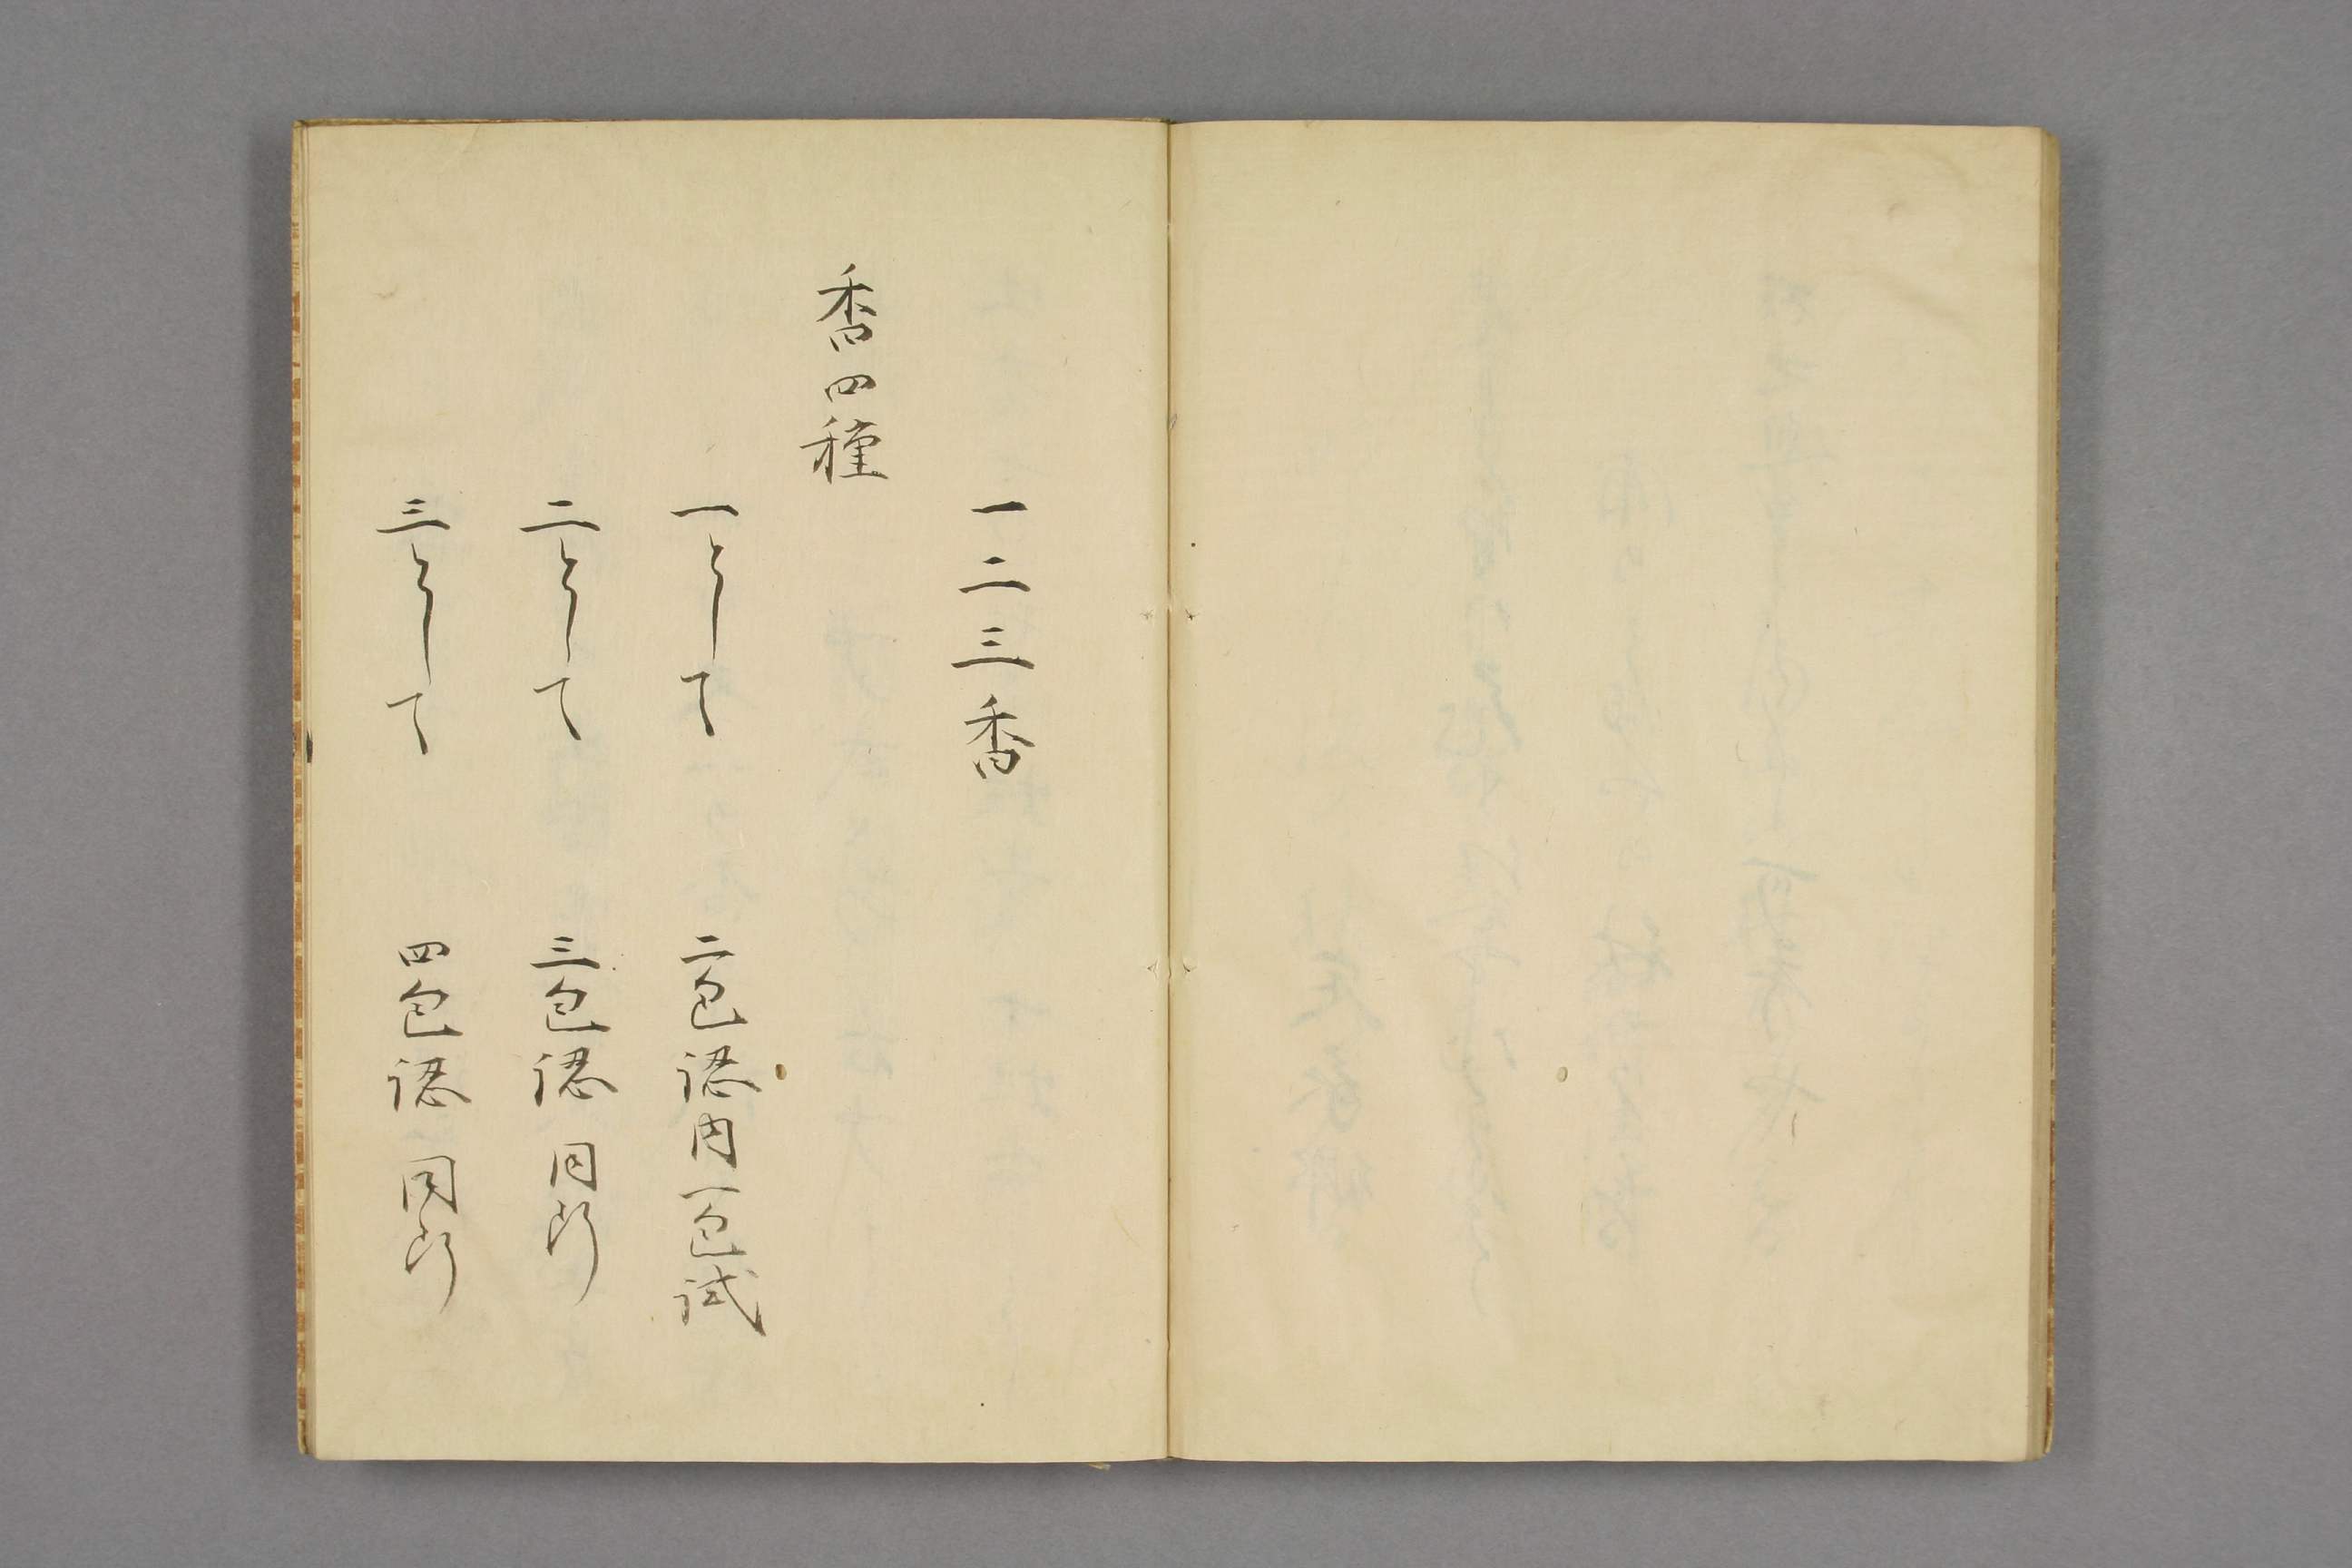 一二三香
香四種
一として 二包認内一包試
二として 三包認同断
三として 四包認同断